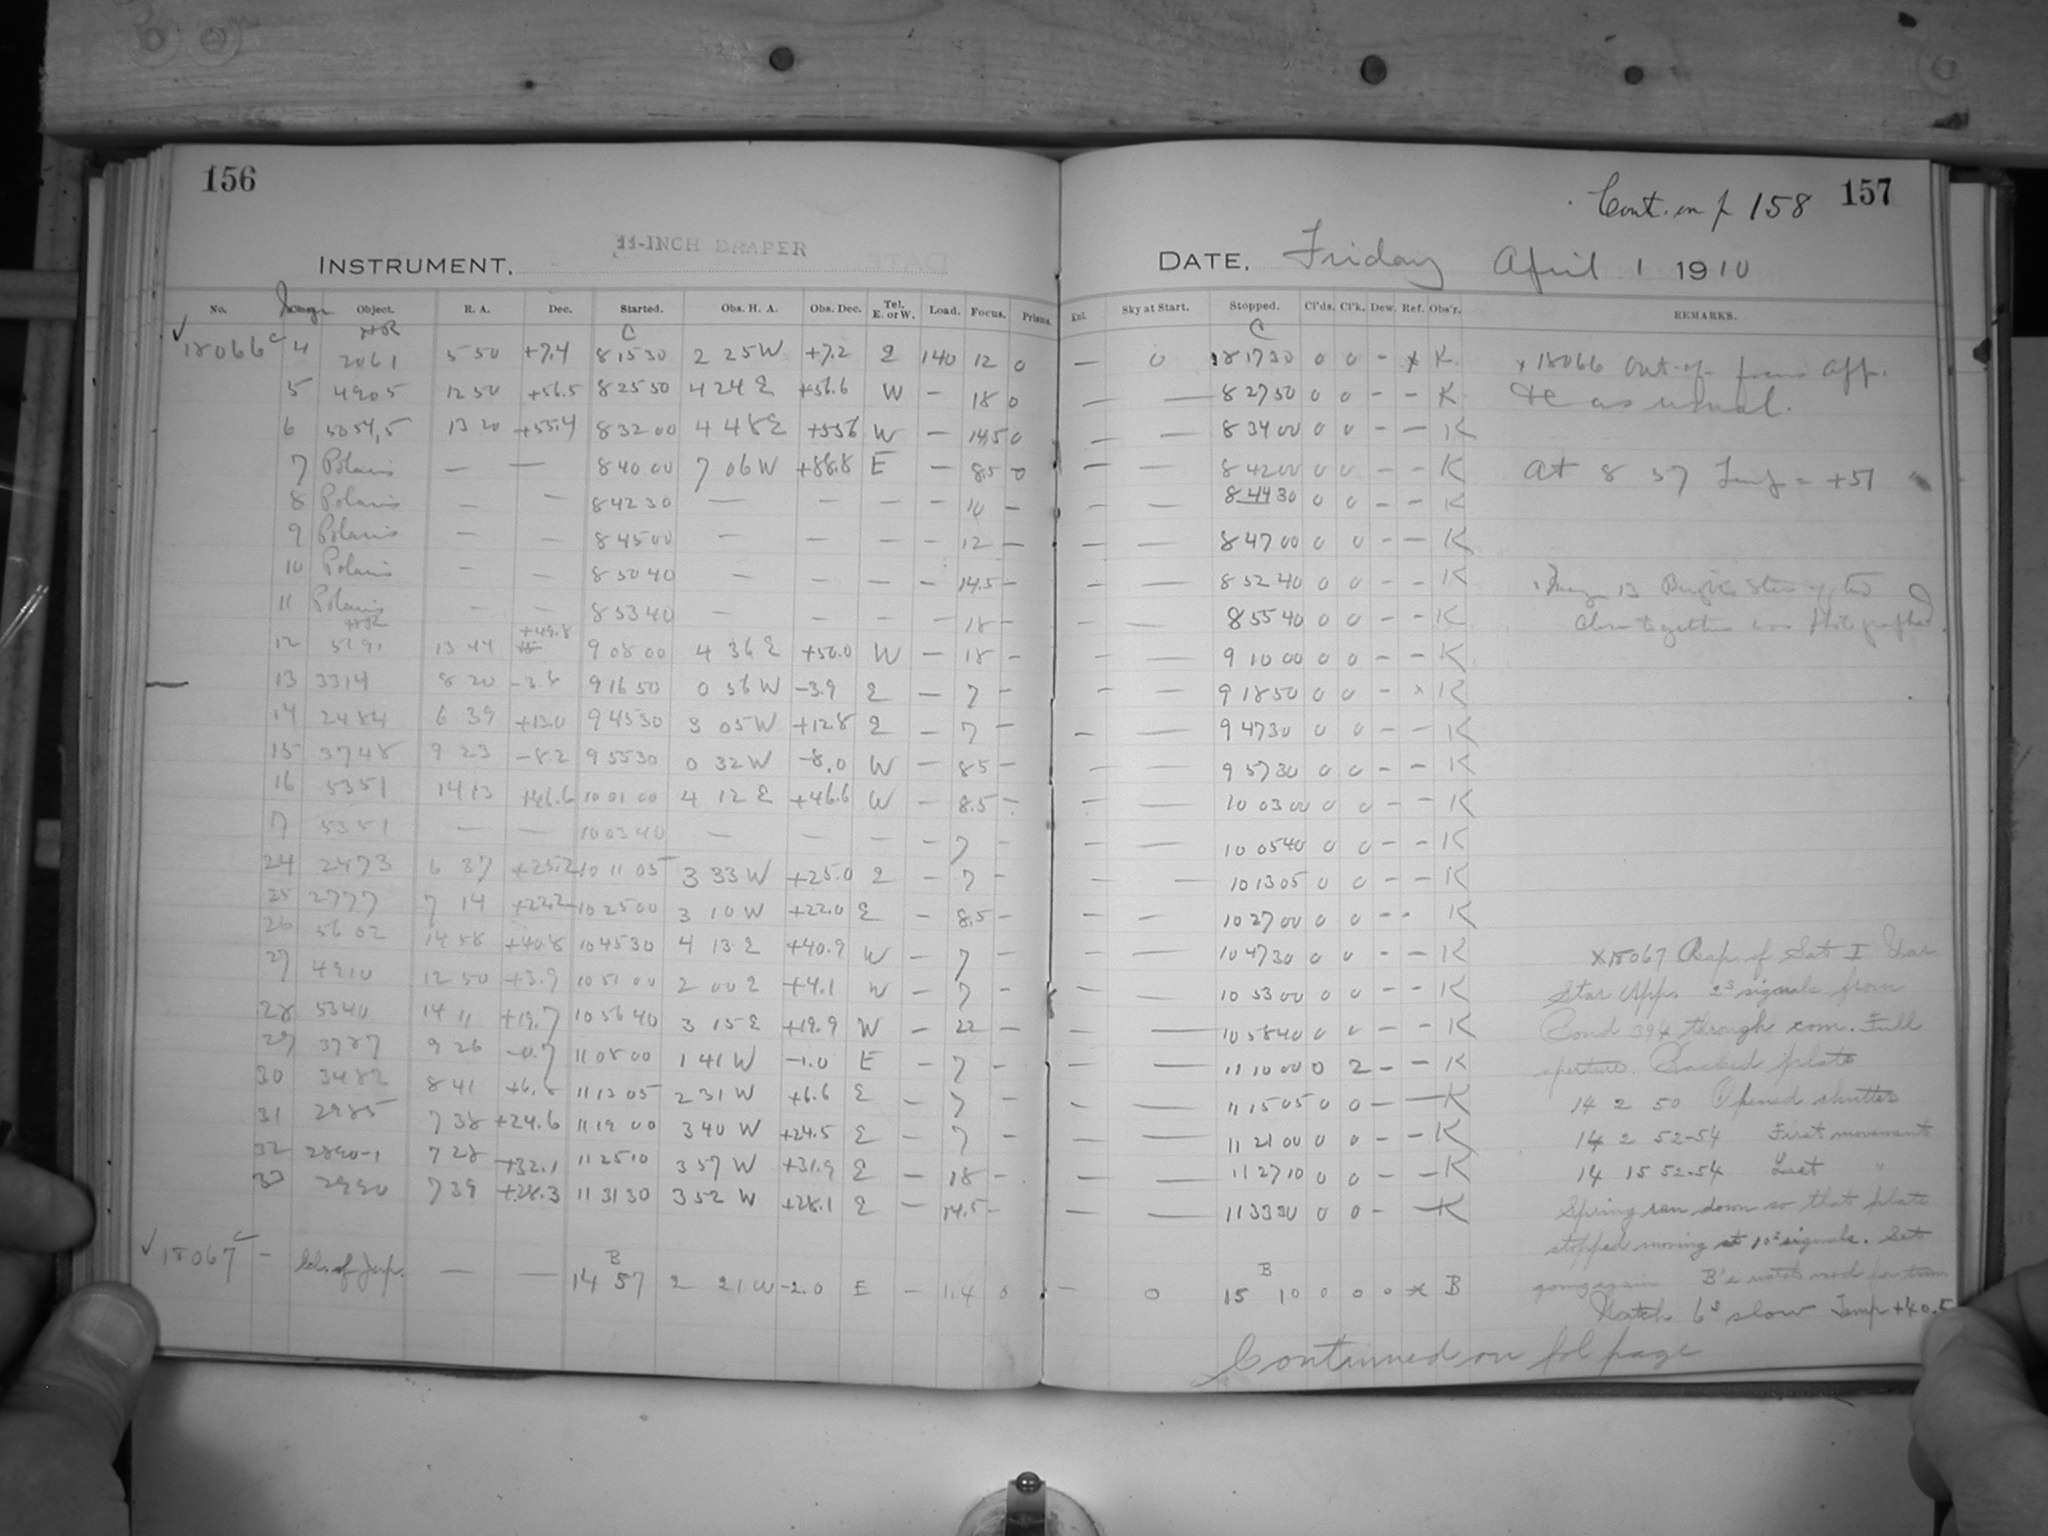 156
11-INCH DRAPER
INSTRUMENT.
No. Image Object. R. A. Dec. Started. Obs. H. A. Obs. Dec. Tel. E. or W. Load. Focus. Prisms.
HR C
✓ 18066 c 4 2061 5 50 +7.4 8 15 30 2 25 W +7.2 E 140 12 0
5 4905 12 50 +56.5 8 25 50 4 24 E +56.6 W – 18 0
6 5054,5 13 20 +55.4 8 32 00 4 48 E +55.6 W – 14.5 0
7 Polaris — — 8 40 00 7 06 W +88.8 E – 8.5 0
8 Polaris – – 8 42 30 — – – – 10 –
9 Polaris – – 8 45 00 – – – – 12 –
10 Polaris – – 8 50 40 – – – – 14.5 –
11 Polaris – – 8 53 40 – – – – 18 –
HR +49.8
12 5191 13 44 9 08 00 4 36 E +50.0 W – 18 –
13 3314 8 20 -3.6 9 16 50 0 56 W -3.9 E – 7 –
14 2484 6 39 +13.0 9 45 30 3 05 W +12.8 E – 7 –
15 3748 9 23 -8.2 9 55 30 0 32 W -8.0 W – 8.5 –
16 5351 14 13 +46.6 10 01 00 4 12 E +46.6 W – 8.5 –
7 5351 — — 10 03 40 — – – – 7 –
24 2473 6 37 +25.2 10 11 05 3 33 W +25.0 E – 7 –
25 2777 7 14 +22.2 10 25 00 3 10 W +22.0 E – 8.5 –
26 5602 14 58 +40.8 10 45 30 4 13 E +40.9 W – 7 –
27 4910 12 50 +3.9 10 51 00 2 00 E +4.1 W – 7 –
28 5340 14 11 +19.7 10 56 40 3 15 E +19.9 W – 22 –
29 3787 9 26 -0.7 11 08 00 1 41 W -1.0 E – 7 –
30 3482 8 41 +6.8 11 13 05 2 31 W +6.6 E – 7 –
31 2985 7 38 +24.6 11 19 00 3 40 W +24.5 E – 7 –
32 2890-1 7 28 +32.1 11 25 10 3 57 W +31.9 E – 18 –
33 2990 7 39 +28.3 11 31 30 3 52 W +28.1 E – 14.5 –
B
✓ 18067 c – Sat. of Jup. — — 14 57 2 21 W -2.0 E – 1.4 0
Cont. on p 158 157
DATE. Friday April 1 1910
Exl. Sky at Start. Stopped. Cl'ds. Cl'k. Dew. Ref. Obs'r. REMARKS.
C
— 0 8 17 30 0 0 – x K.
— — 8 27 50 0 0 – – K
— — 8 34 00 0 0 – – K
— — 8 42 00 0 0 – – K
— — 8 44 30 0 0 – – K
— — 8 47 00 0 0 – – K
— — 8 52 40 0 0 – – K
— — 8 55 40 0 0 – – K
— — 9 10 00 0 0 – – K
— — 9 18 50 0 0 – x K
— — 9 47 30 0 0 – – K
— — 9 57 30 0 0 – – K
— — 10 03 00 0 0 – – K
— — 10 05 40 0 0 – – K
— — 10 13 05 0 0 – – K
— — 10 27 00 0 0 – – K
— — 10 47 30 0 0 – – K
— — 10 53 00 0 0 – – K
— — 10 58 40 0 0 – – K
— — 11 10 00 0 2 – – K
— — 11 15 05 0 0 – – K
— — 11 21 00 0 0 – – K
— — 11 27 10 0 0 – – K
— — 11 33 30 0 0 – – K
B
— 0 15 10 0 0 0 x B
x 18066 Out-of-focus App.
&c as usual.
At 8 57 Temp = +51
x Image 13 Brightest Star of two
close together was Photographed
x 18067 Reap. of Sat I
Star App. 2s signals from
Bond 394 through com. Full
aperture. Backed plate
14 2 50 Opened shutter
14 2 52-54 First movement
14 15 52-54 Last "
Spring ran down so that plate
stopped moving at 10s signals. Set
going again B's watch used for time
Watch 6s slow Temp +40.5
Continued on fol page